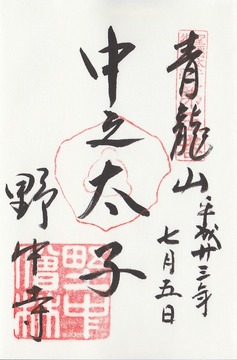 青龍山
平成廿三年
七月五日
中之太子
野中寺
野中
僧林